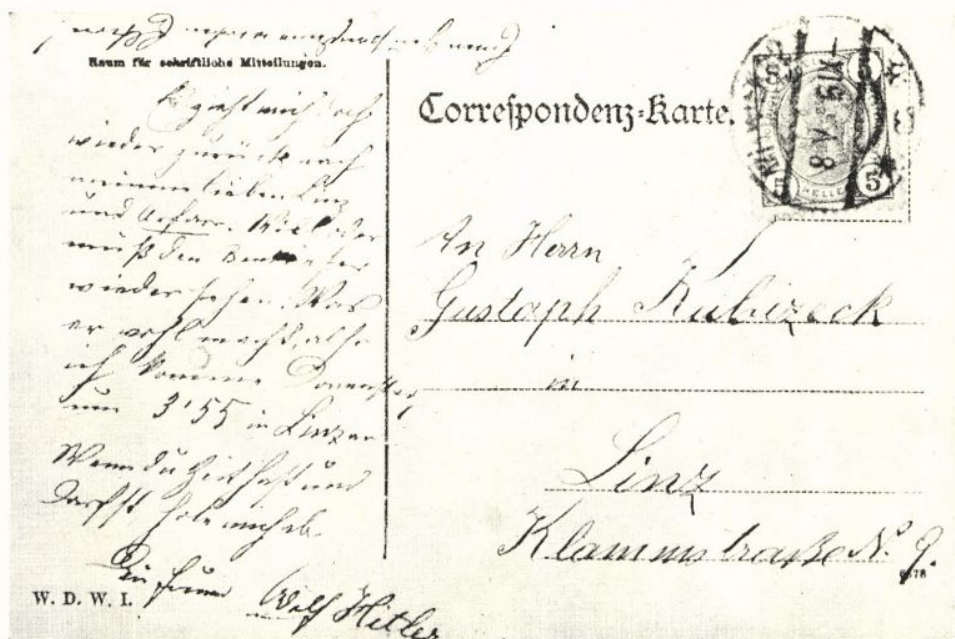 Raum für schriftliche Mitteilungen.
Es zieht mich doch
wieder zurück nach
meinem lieben Linz
und Urfar. Will oder
muß den Benkieser
wieder sehen. Was
er wohl macht, also
ich komme Donnerstag
um 3'55 in Linz an
Wenn du Zeit hast und
darfst hole mich ab.
Dein Freund
Adolf Hitler
W. D. W. I.
Correspondenz-Karte.
An Herrn
Gustaph Kubizeck
in
Linz
Klammstraße N. 9.
5
5
5
HELLER
8 V